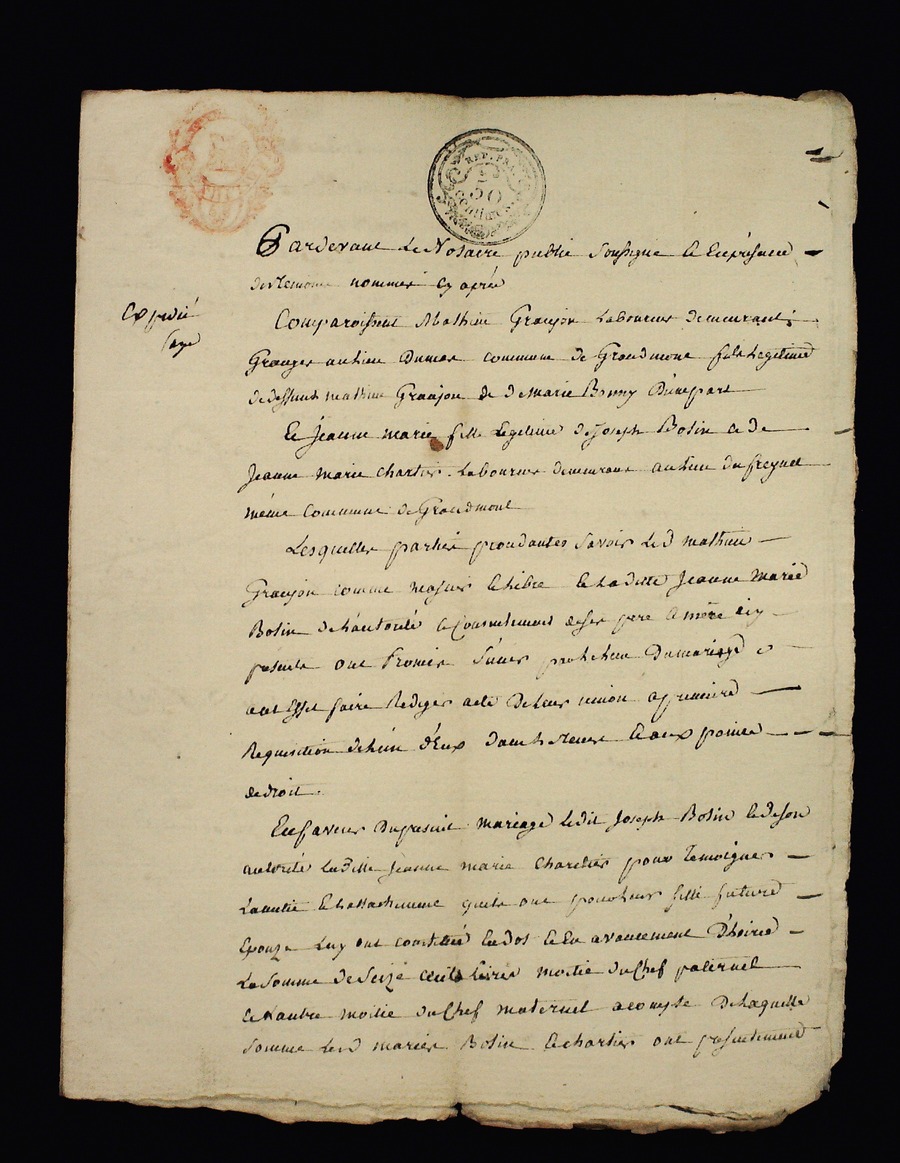 REP. FRA.
50
centimes
Pardevant Le Notaire public soussigné et En présence
des temoins nommés cy après
Expedié
Comparoissent Mathieu Granjon Laboureur demeurant
Granges au lieu Dumas commune de Grandmont fils Legitime
de deffunt mathieu Granjon et de Marie Bonny D'unepart
Et Jeanne marie fille Legitime de Joseph Bosin et de
Jeanne marie Chartier Laboureur demeurant au lieu du freynet
méme Commune de Grandmont
Lesquelles parties procedantes savoir Led mathieu
Granjon comme majeur et libre et La ditte Jeanne Marie
Bosin de l'autorité et Consentement de ses pere et mère icy
presents ont Promis s'unir par le lien du mariage et
a cet effet faire Rediger acte de Leur union a premiere
Requisition de l'un d'Eux d'autre Eux aux peines
de droit.
En faveur Du present mariage Ledit Joseph Bosin et de son
autorité Laditte Jeanne marie Chartier pour temoigner
L'amitié et L'attachement qu'ils ont pour leur fille future
Epouze Luy ont constitué En dos et En avancement D'hoirie
La Somme de Seize Cents Livres moitié du Chef paternel
et L'autre moitié du Chef maternel acompte De Laquelle
Somme Lesd mariés Bosin et Chartier ont presentement